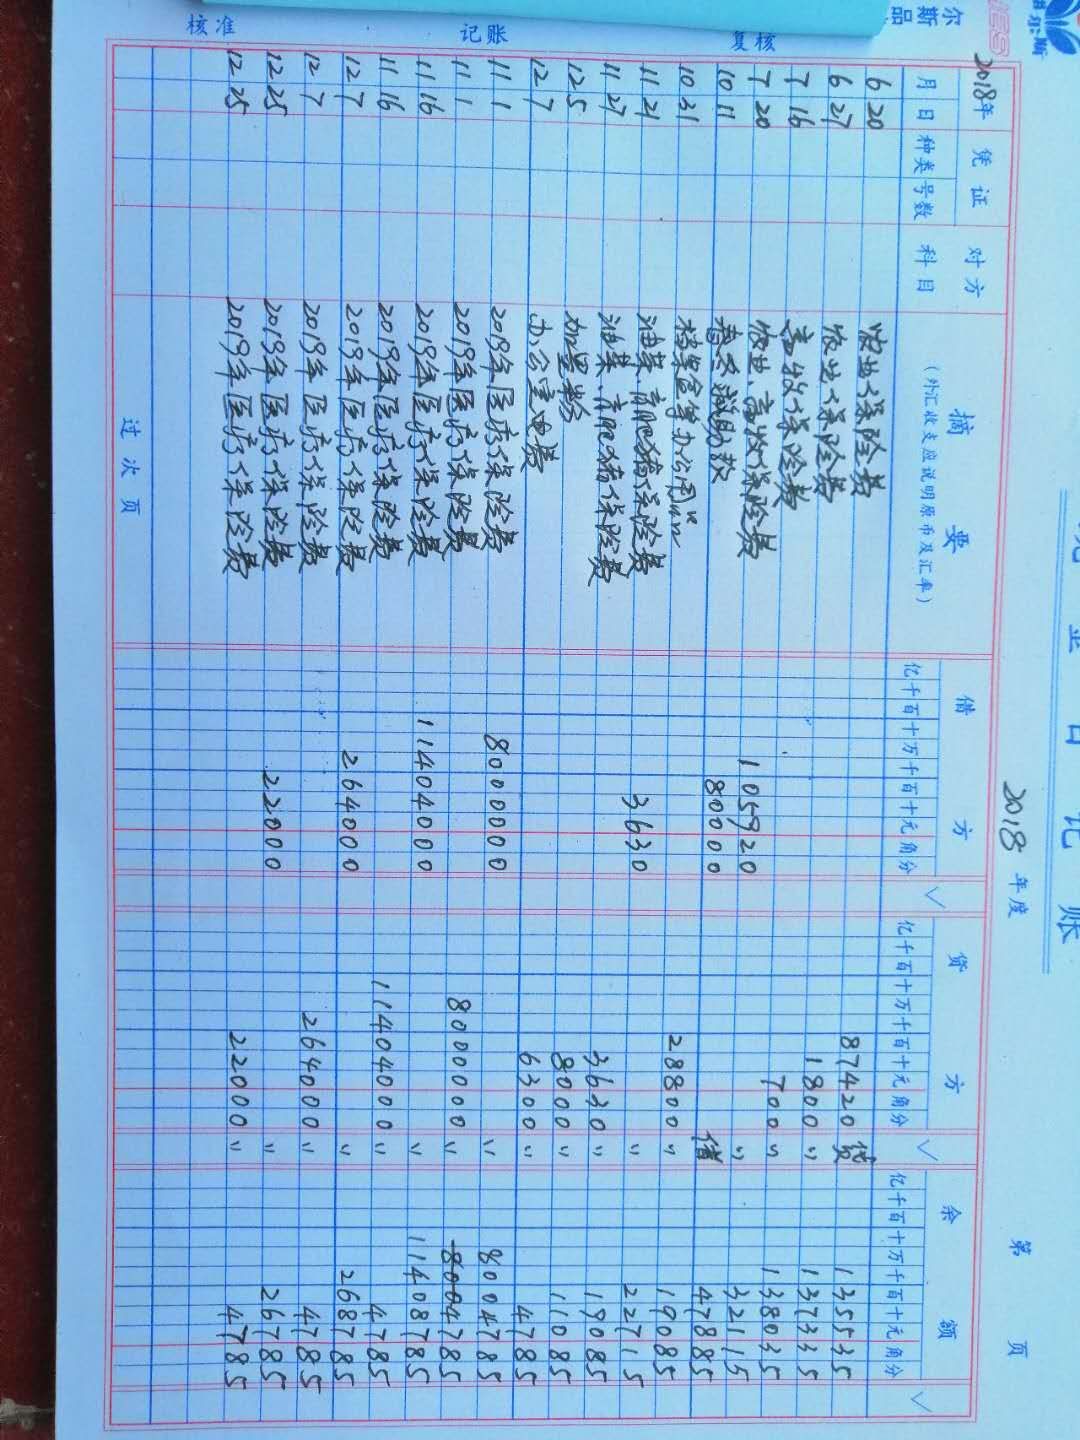 现金日记账
2018年度
第 页
2018年 凭证 对方 摘要 借方 √ 贷方 √ 余额 √
月 日 种类 号数 科目 (外汇收支应说明原币及汇率) 亿千百十万千百十元角分 亿千百十万千百十元角分 亿千百十万千百十元角分
6 20 农业保险费 87420 贷 135535
6 27 农业保险费 1800 〃 137335
7 16 畜牧保险费 700 〃 138035
7 20 农业、畜牧保险费 105920 〃 32115
10 11 补助款 80000 借 47885
10 21 档案盒等办公用品 28800 〃 19085
11 21 油菜、育肥猪保险费 3630 〃 22715
11 27 油菜、育肥猪保险费 3630 〃 19085
12 5 加墨粉 8000 〃 11085
12 7 办公室电费 6300 〃 4785
11 1 2019年医疗保险费 8000000 〃 8004785
11 1 2019年医疗保险费 8000000 〃 8004785
11 16 2019年医疗保险费 11404000 〃 11408785
11 16 2019年医疗保险费 11404000 〃 4785
12 7 2019年医疗保险费 264000 〃 268785
12 7 2019年医疗保险费 264000 〃 4785
12 25 2019年医疗保险费 22000 〃 26785
12 25 2019年医疗保险费 22000 〃 4785
过次页
核准 记账 复核